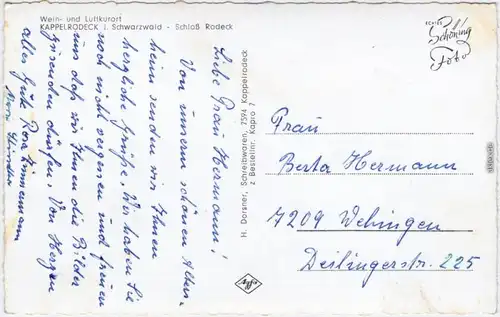 Wein- und Luftkurort
KAPPELRODECK i. Schwarzwald - Schloß Rodeck
ECHTES
Schöning
Foto
Liebe Frau Hermann!
Von unserem schönen Alters-
heim senden wir Ihnen
herzliche Grüße. Wir haben Sie
noch nicht vergessen und freuen
uns daß wir Ihnen die Bilder
zusenden dürfen. Von Herzen
alles Gute Rosa
H. Dorsner, Schreibwaren, 7594 Kappelrodeck
z Bestellnr. Kapro 7
Frau
Berta Hermann
7209 Wehingen
Deilingerstr. 225